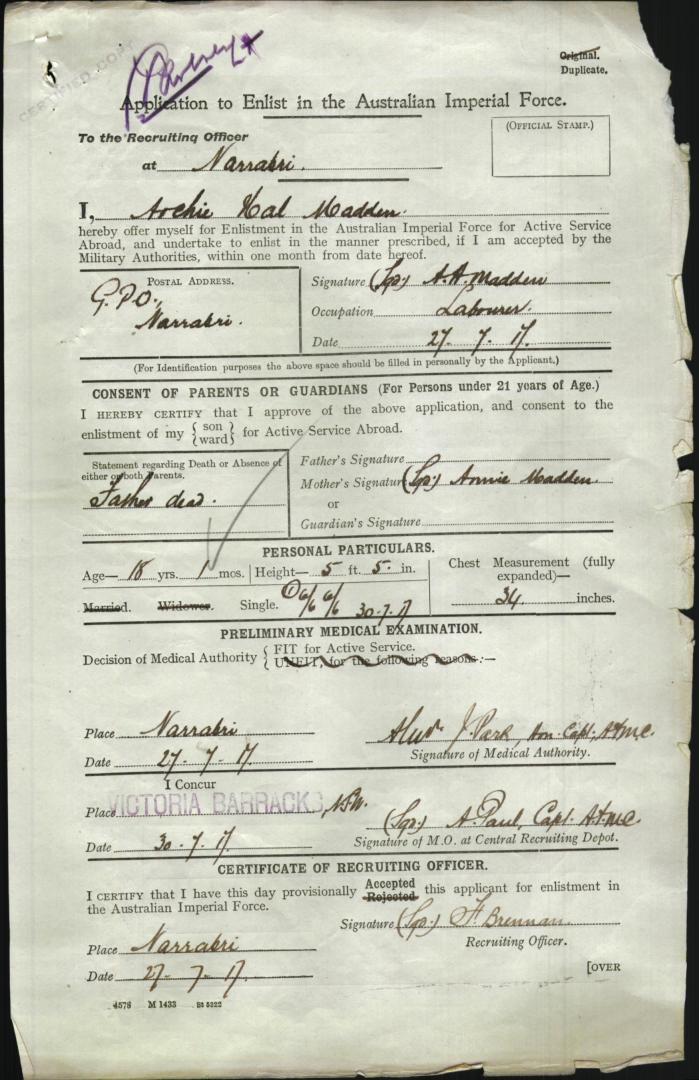 CERTIFIED COPY
Original.
Duplicate.
Application to Enlist in the Australian Imperial Force.
To the Recruiting Officer
(OFFICIAL STAMP.)
at Narrabri.
I, Archie Hal Madden.
hereby offer myself for Enlistment in the Australian Imperial Force for Active Service
Abroad, and undertake to enlist in the manner prescribed, if I am accepted by the
Military Authorities, within one month from date hereof.
POSTAL ADDRESS.
G.P.O.,
Narrabri.
Signature (Sgd.) A. H. Madden
Occupation Labourer.
Date 27. 7. 17.
(For Identification purposes the above space should be filled in personally by the Applicant.)
CONSENT OF PARENTS OR GUARDIANS (For Persons under 21 years of Age.)
I HEREBY CERTIFY that I approve of the above application, and consent to the
enlistment of my { son ward } for Active Service Abroad.
Statement regarding Death or Absence of
either or both Parents.
Father dead.
Father's Signature
Mother's Signature (Sgd.) Annie Madden.
or
Guardian's Signature
PERSONAL PARTICULARS.
Age— 18 yrs. 1 mos. Height— 5 ft. 5 in.
Chest Measurement (fully
expanded)—
34 inches.
Married. Widower. Single. 6/6 6/6 30.7.17
PRELIMINARY MEDICAL EXAMINATION.
Decision of Medical Authority { FIT for Active Service.
UNFIT, for the following reasons:—
Place Narrabri
J. Park, Hon. Capt. A.A.M.C.
Signature of Medical Authority.
Date 27. 7. 17.
I Concur
Place VICTORIA BARRACKS, N.S.W.
(Sgd.) A. Paul, Capt. A.A.M.C
Signature of M.O. at Central Recruiting Depot.
Date 30. 7. 17.
CERTIFICATE OF RECRUITING OFFICER.
I CERTIFY that I have this day provisionally Accepted Rejected this applicant for enlistment in
the Australian Imperial Force.
Signature (Sgd.) F. Brennan.
Recruiting Officer.
Place Narrabri
Date 27. 7. 17.
[OVER
4578 M 1433 St 5322